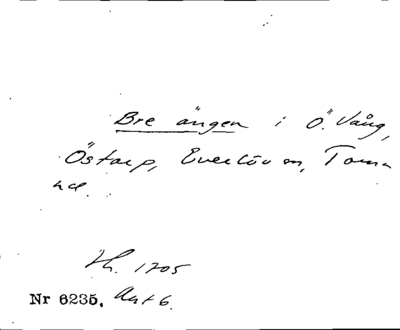 Bre ängen i Ö. Vång,
Östarp, Everlöv sn, Torna
hd.
Hh. 1705
Nr 6235, Akt 6.